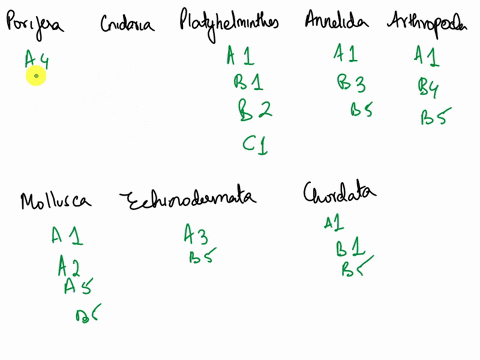 Porifera Cnidaria Platyhelminthes Annelida Arthropoda
A4 A1 A1 A1
B1 B3 B4
B2 B5 B5
C1
Mollusca Echinodermata Chordata
A1 A3 A1
A2 B5 B1
A5 B5
B5